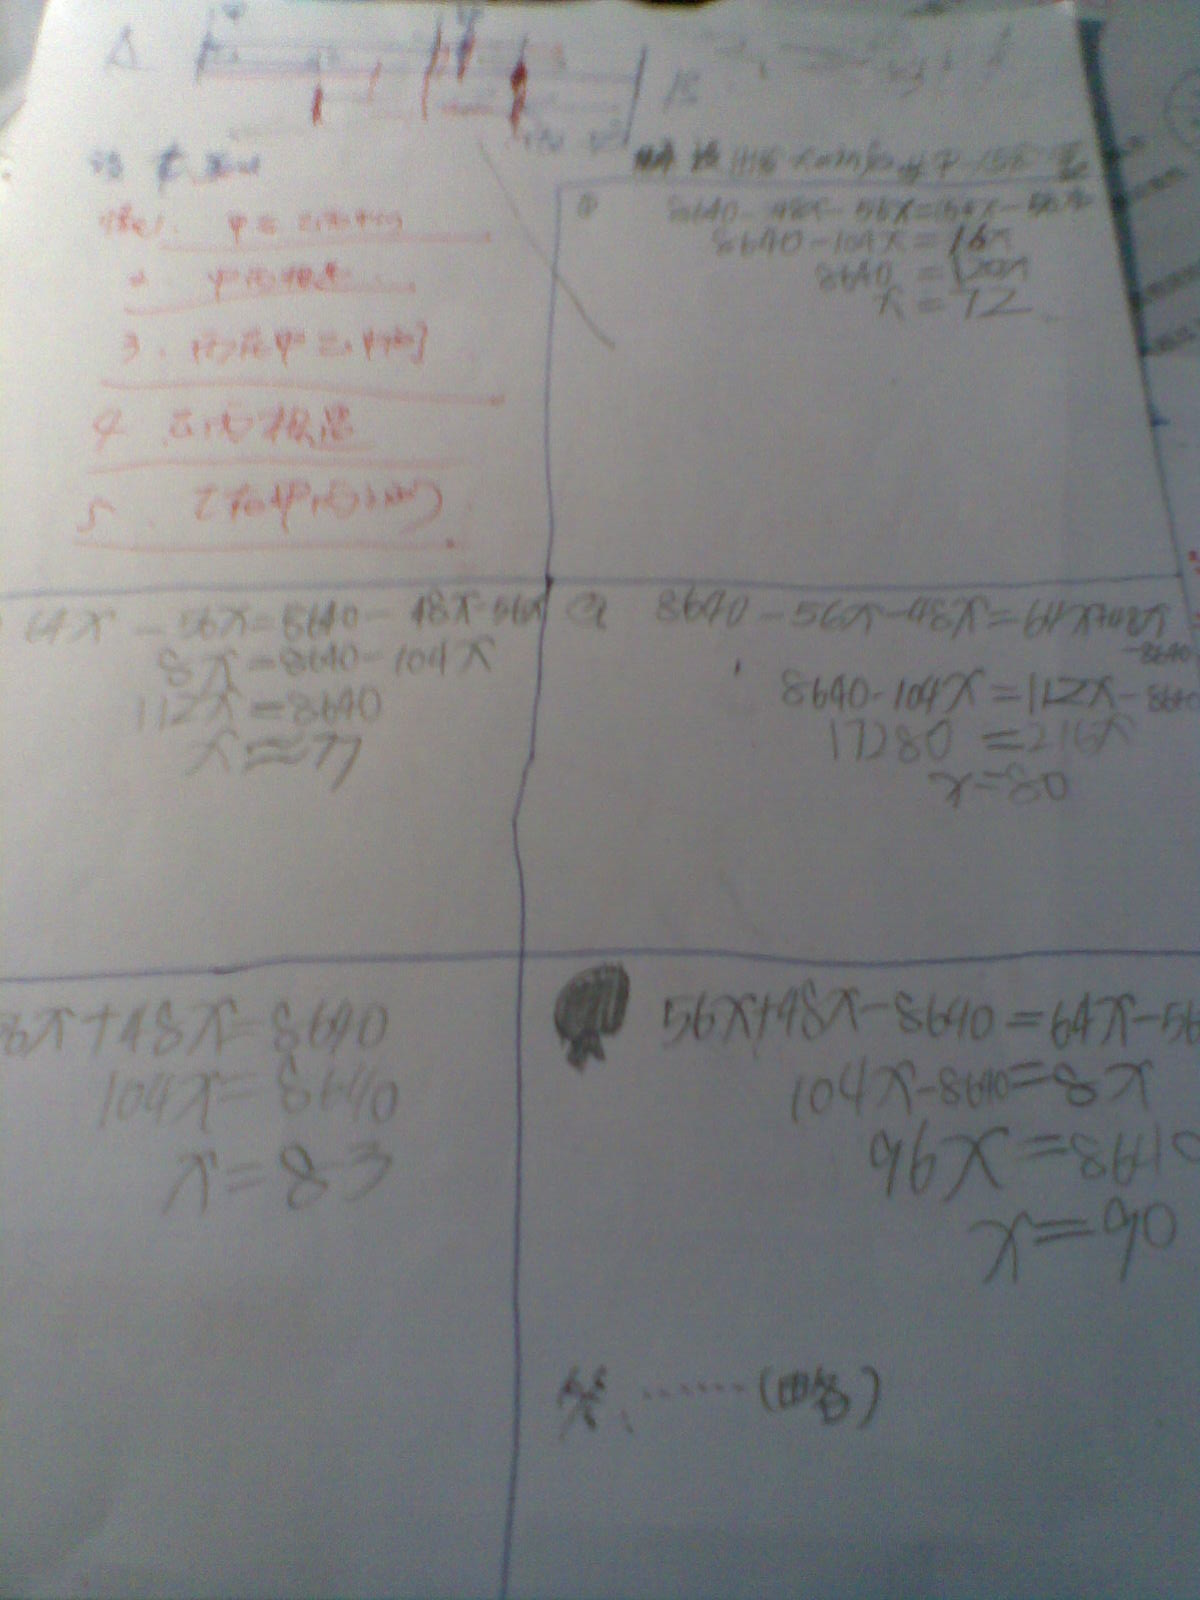 A
B
设
1. 甲在乙丙中间
2. 甲丙相遇
3. 丙在甲乙中间
4 乙丙相遇
5. 乙在甲丙中间
① 8640-48x-56x=
8640-104x=16x
8640 =120x
x=72
64x-56x=8640-48x-56x
8x=8640-104x
112x=8640
x≈77
8640-56x-48x=64x+48x
-8640
8640-104x=112x-8640
17280=216x
x=80
8x+48x=8640
104x=8640
x=83
56x+48x-8640=64x-56
104x-8640=8x
96x=8640
x=90
答:……(略)